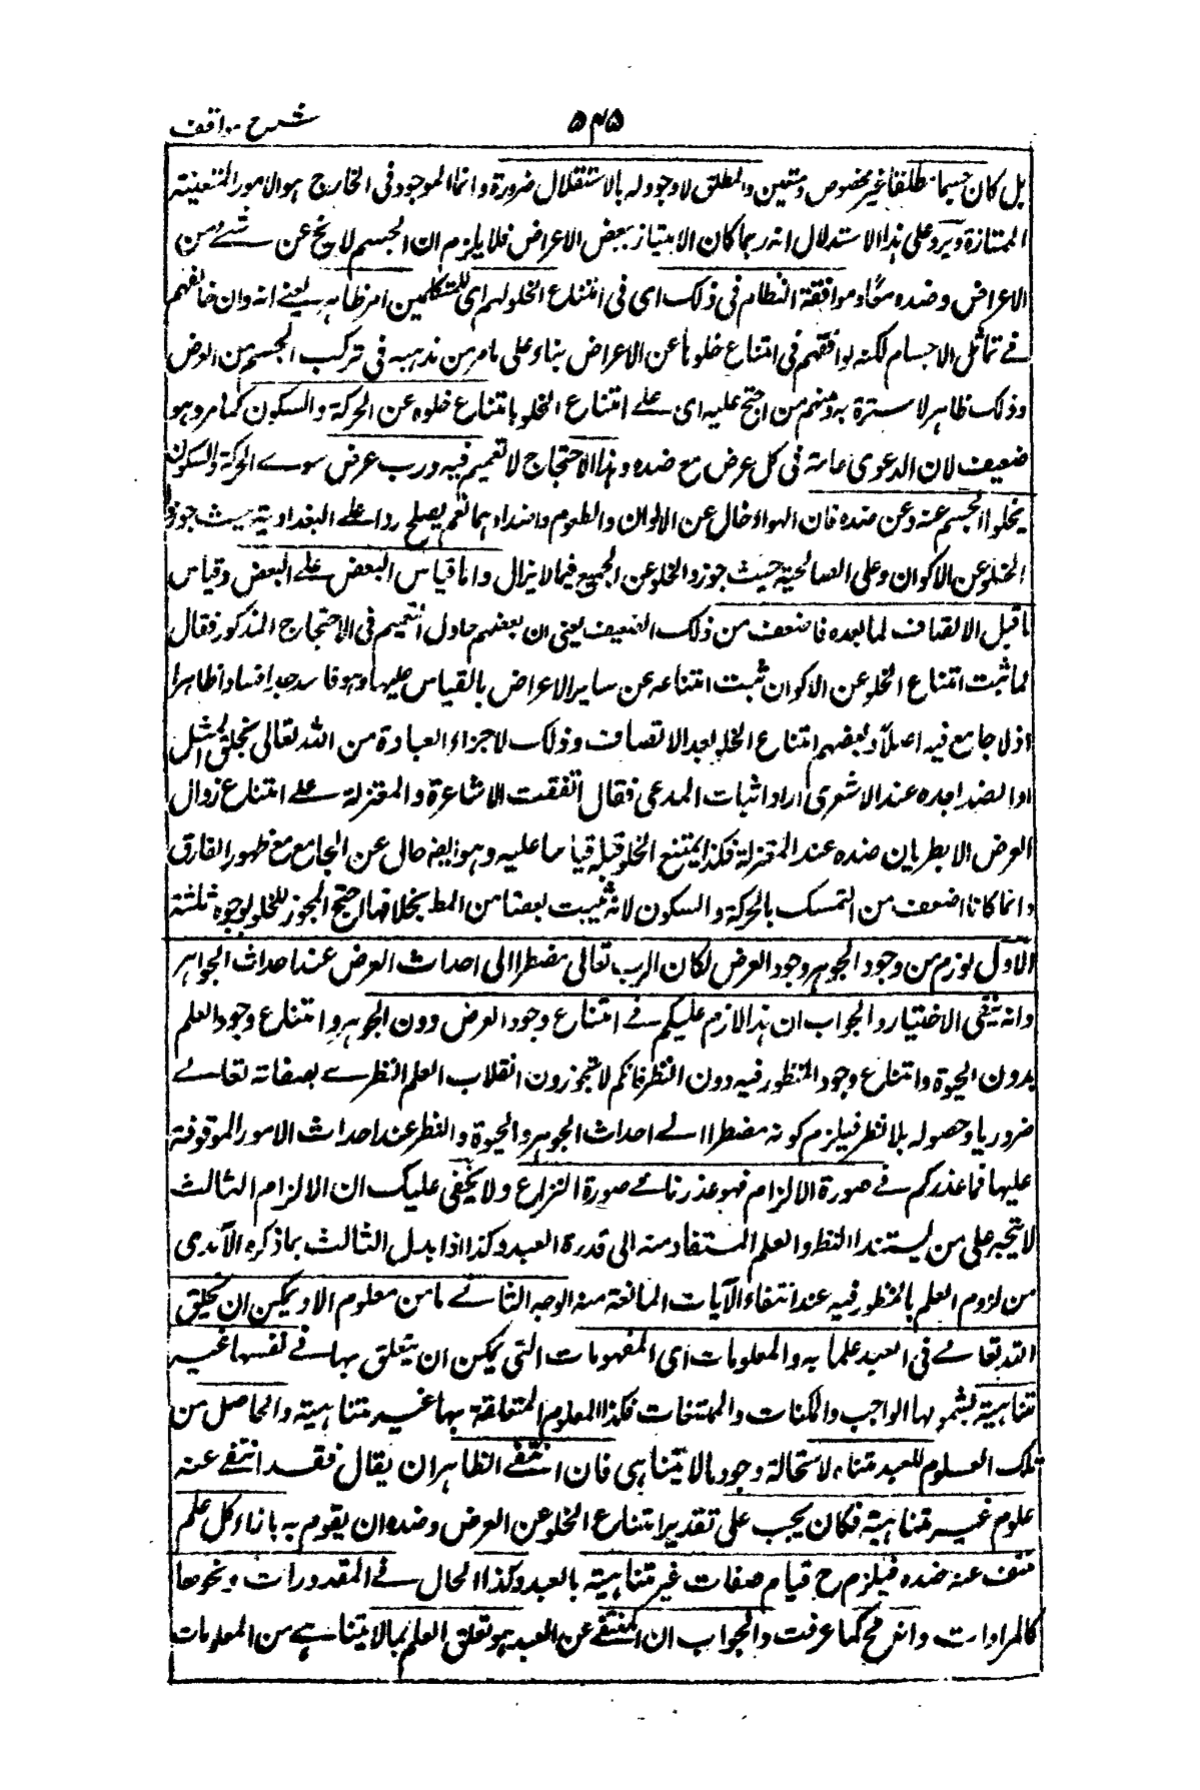 شرح مواقف
۵۴۵
بل كان جسما مطلقا غير مخصوص ومتعين والمطلق لا وجود له بالاستقلال ضرورة وانما الموجود فى الخارج هو الامور المتعينة
الممتازة ويرد على هذا الاستدلال انه ربما كان الامتياز ببعض الاعراض فلا يلزم ان الجسم لا يخ عن شئ من
الاعراض وضده معًا وموافقة النظام فى ذلك اى فى امتناع الخلو لهم اى للمتكلمين امر ظاهر يعنے انه وان خالفهم
فے تماثل الاجسام لكنه يوافقهم فى امتناع خلوها عن الاعراض بناء على ما مر من مذهبه فى تركب الجسم من العرض
وذلك ظاهر لا سترة به ومنهم من احتج عليه اى علے امتناع الخلو بامتناع خلوه عن الحركة والسكون كما مر وهو
ضعيف لان الدعوى عامة فى كل عرض مع ضده وهذا الاحتجاج لا تعميم فيه ورب عرض سوے الحركة والسكون
يخلوا الجسم عنه وعن ضده فان الهواء خال عن الالوان والطعوم واضدادهما نعم يصلح ردا علے البغدادية حيث جوزوا
الخلو عن الاكوان وعلى الصالحية حيث جوزوا الخلو عن الجميع فيما لا يزال واما قياس البعض علے البعض وقياس
ما قبل الاتصاف لما بعده فاضعف من ذلك الضعيف يعنى ان بعضهم حاول التعميم فى الاحتجاج المذكور فقال
لما ثبت امتناع الخلو عن الاكوان ثبت امتناعه عن ساير الاعراض بالقياس عليها وهو فاسد جدا فسادا ظاهرا
اذ لا جامع فيه اصلاً وبعضهم امتناع الخلو بعد الاتصاف وذلك لاجزاء العبادة من الله تعالى بخلق المثل
او الضد اجده عند الاشعرى اراد اثبات المدعى فقال اتفقت الاشاعرة والمعتزلة علے امتناع زوال
العرض الا بطريان ضده عند المعتزلة فكذا يمتنع الخلو قبله قياسا عليه وهو ايضا خال عن الجامع مع ظهور الفارق
وانما كانا اضعف من التمسك بالحركة والسكون لانه يثبت بعضا من المط بخلافهما احتج المجوز للخلو بوجوه ثلثة
الاول لو لزم من وجود الجوهر وجود العرض لكان الرب تعالى مضطرا الى احداث العرض عند احداث الجواهر
وانه ينفى الاختيار والجواب ان هذا لازم عليكم فے امتناع وجود العرض دون الجوهر وامتناع وجود العلم
بدون الحيوة وامتناع وجود المنظور فيه دون النظر فانكم لا تجوزون انقلاب العلم النظرے بصفاته تعالے
ضروريا وحصوله بلا نظر فيلزم كونه مضطرا الے احداث الجوهر والحيوة والنظر عند احداث الامور الموقوفة
عليها فما عذركم فے صورة الالزام فهو عذرنا فے صورة النزاع ولا يخفى عليك ان الالزام الثالث
لا يتجه على من يستند النظر والعلم المستفاد منه الى قدرة العبد وكذا اذا بدل الثالث بما ذكره الآمدى
من لزوم العلم بالمنظور فيه عند انتفاء الآيات المانعة منه الوجه الثانے ما من معلوم الا ويمكن ان يخلق
الله تعالے فى العبد علما به والمعلومات اى المفهومات التى يمكن ان يتعلق بها فے نفسها غير
متناهية لشمولها الواجب والممكنات والممتنعات فكذا العلوم المتعلقة بها غير متناهية والحاصل من
تلك العلوم للعبد متناه لاستحالة وجود ما لا يتناهى فان انتفے الظاهر ان يقال فقد انتفے عنه
علوم غير متناهية فكان يجب على تقدير امتناع الخلو عن العرض وضده ان يقوم به بازاء كل علم
منتف عنه ضده فيلزم ح قيام صفات غير متناهية بالعبد وكذا الحال فے المقدورات ونحوها
كالمرادات وانه مح كما عرفت والجواب ان المنتفے عن العبد هو تعلق العلم بما لا يتناهے من المعلومات